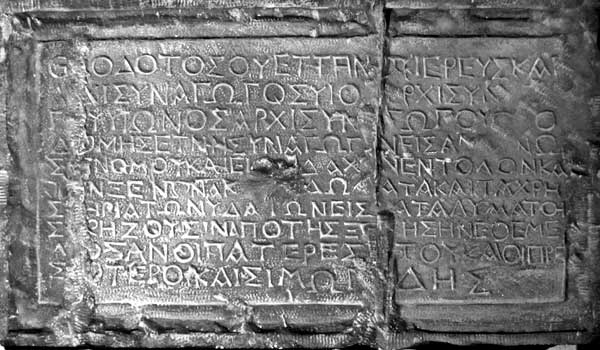 ΘΕΟΔΟΤΟΣΟΥΕΤΤΗΝΟΥΙΕΡΕΥΣΚΑΙ
ΧΙΣΥΝΑΓΩΓΟΣΥΙΟΣΑΡΧΙΣΥΝ
ΓΟΥΥΙΩΝΟΣΑΡΧΙΣΥΝΑΓΩΓΟΥΩΚΟ
ΔΟΜΗΣΕΤΗΝΣΥΝΑΓΩΓΗΝΕΙΣΑΝ ΝΩ
ΣΙΝΝΟΜΟΥΚΑΙΕΙΣ ΔΑΧΗΝΕΝΤΟΛΩΝΚΑΙ
ΤΟΝΞΕΝΩΝΑΚΑ ΔΩΜΑΤΑΚΑΙΤΑΧΡΗ
ΣΤΗΡΙΑΤΩΝΥΔΑΤΩΝΕΙΣΚΑΤΑΛΥΜΑΤΟΙ
ΣΧΡΗΖΟΥΣΙΝΑΠΟΤΗΣΞΕΝΗΣΗΝΕΘΕΜΕ
ΛΙΩΣΑΝΟΙΠΑΤΕΡΕΣΑΥΤΟΥΚΑΙΟΙΠΡΕ
ΣΒΥΤΕΡΟΙΚΑΙΣΙΜΩΝΙΔΗΣ